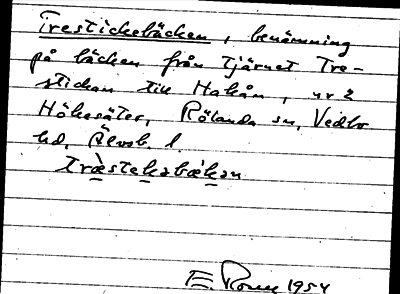 Trestickebäcken, benämning
på bäcken från tjärnet Tre-
stickan till Hakån, nr 2
Högsäter, Rölanda sn, Vedbo
hd, Älvsb. l.
træstekabækan
E. 1954